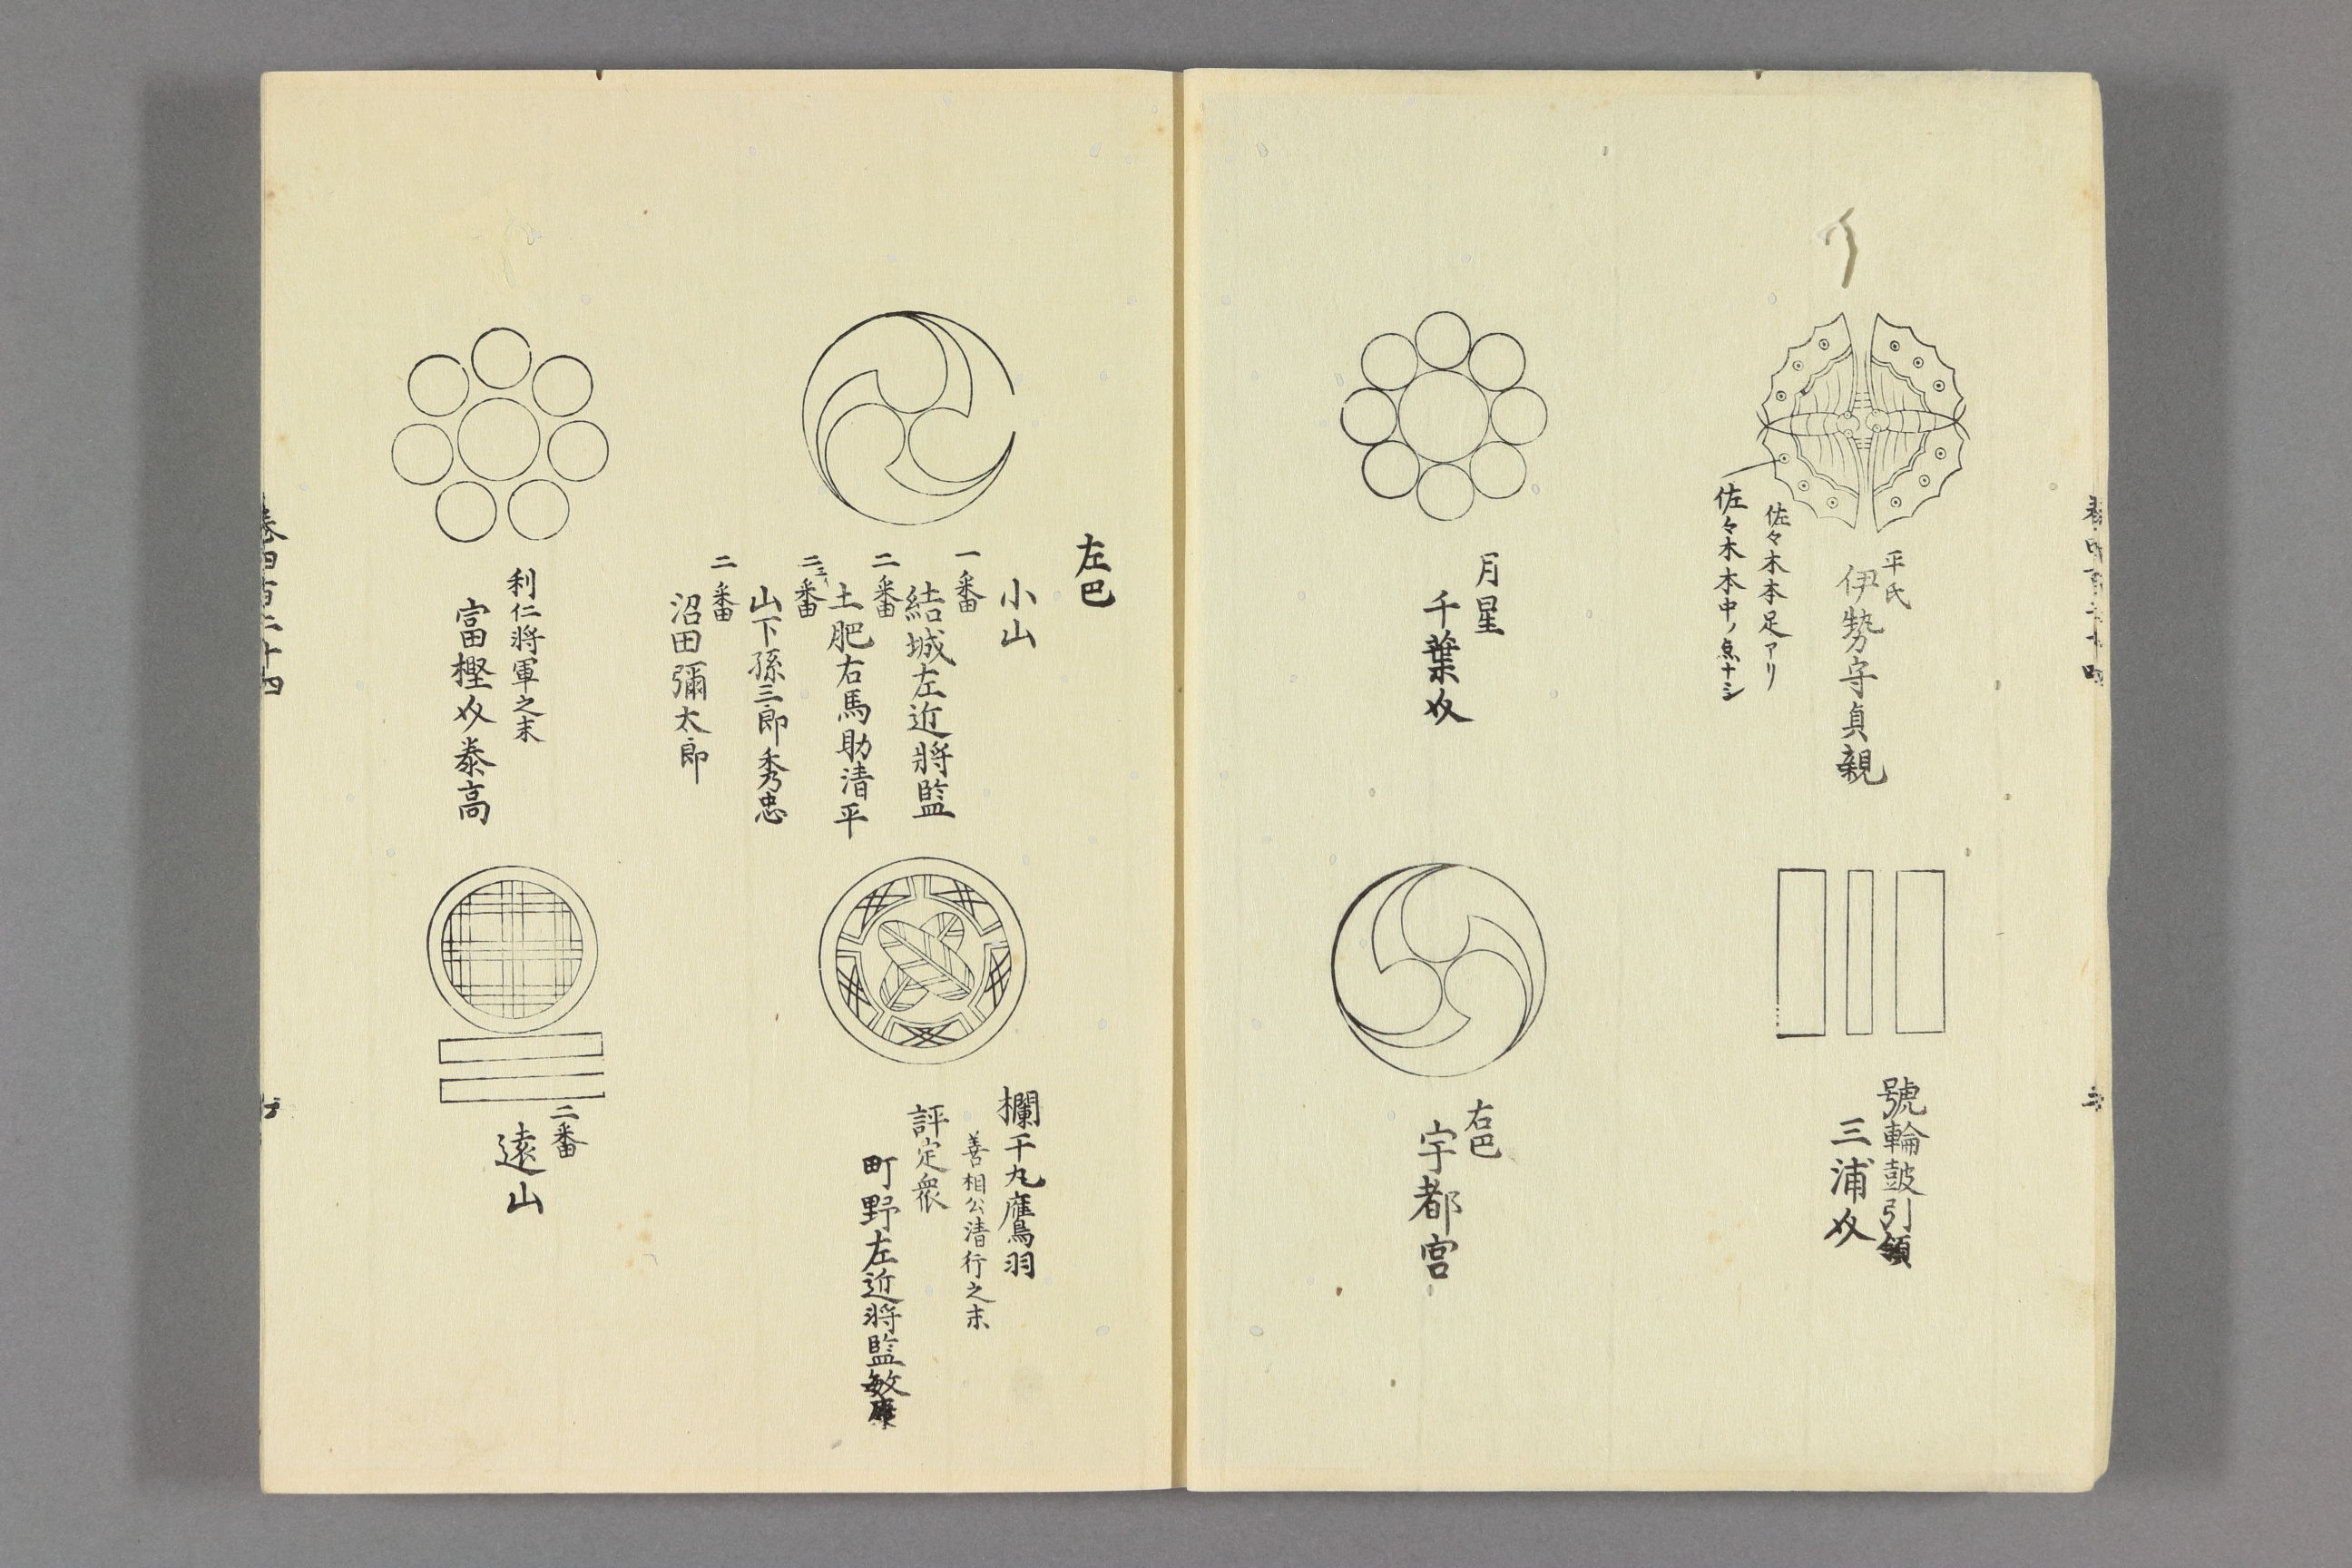 平氏
伊勢守貞親
佐々木本足アリ
佐々木本中ノ点ナシ
號輪鼓引領
三浦介
月星
千葉介
右巴
宇都宮
左巴
小山
一番
結城左近将監
二番
土肥右馬助清平
二番
山下孫三郎秀忠
二番
沼田彌太郎
欄干丸鷹羽
善相公清行之末
評定衆
町野左近将監敏康
利仁将軍之末
富樫介泰高
二番
遠山
巻四百二十四